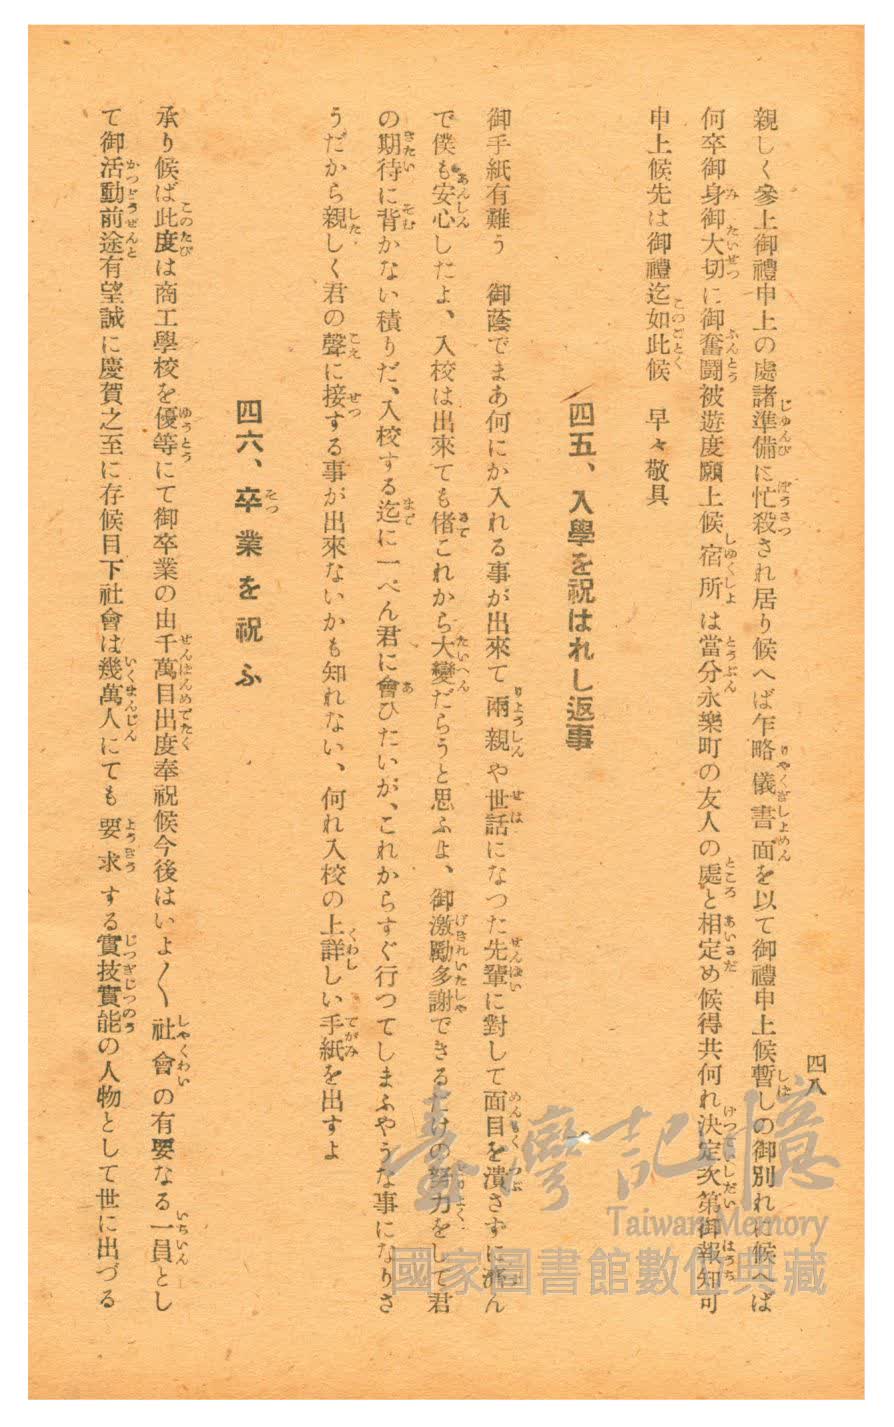 四八
親しく參上御禮申上の處諸準備に忙殺され居り候へば乍略儀書面を以て御禮申上候暫しの御別れに候へば
何卒御身御大切に御奮鬪被遊度願上候宿所は當分永樂町の友人の處と相定め候得共何れ決定次第御報知可
申上候先は御禮迄如此候　早々敬具
四五、入學を祝はれし返事
御手紙有難う　御蔭でまあ何にか入れる事が出來て兩親や世話になつた先輩に對して面目を潰さずに濟ん
で僕も安心したよ、入校は出來ても偖これから大變だらうと思ふよ、御激勵多謝できるだけの努力をして君
の期待に背かない積りだ、入校する迄に一ぺん君に會ひたいが、これからすぐ行つてしまふやうな事になりさ
うだから親しく君の聲に接する事が出來ないかも知れない、何れ入校の上詳しい手紙を出すよ
四六、卒業を祝ふ
承り候ば此度は商工學校を優等にて御卒業の由千萬目出度奉祝候今後はいよ〱社會の有要なる一員とし
て御活動前途有望誠に慶賀之至に存候目下社會は幾萬人にても要求する實技實能の人物として世に出づる
臺灣記憶
Taiwan Memory
國家圖書館數位典藏